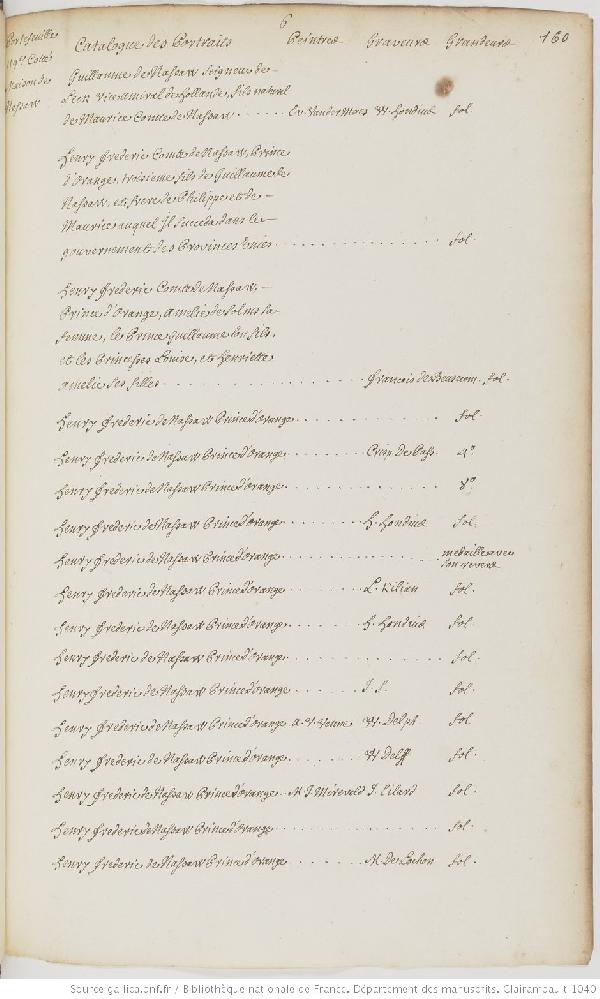 6
160
Portefeuille
Cotté
Maison de
Nassaw
Catalogue des Portraits Peintres Graveurs Grandeurs
Guillaume de Nassaw Seigneur de
Leck viceamiral de hollande, fils naturel
de Maurice Comte de Nassaw . . . . . . Ev. Vander Maes W. hondius fol.
henry frederic Comte de Nassaw, Prince
d'Orange, troisieme fils de Guillaume de
Nassaw, et frere de Philippe et de
Maurice auquel Il succeda dans le
gouvernement des Provinces Unies . . . . . . . . . . . . fol.
henry frederic Comte de Nassaw,
Prince d'Orange, Amelie de Solms sa
femme, le Prince guillaume son fils,
et les Princesses Louise, et henriette
amelie ses filles . . . . . . . . . . . . . . . . françois de fol.
henry frederic de Nassaw Prince d'Orange . . . . . . . . . . fol.
henry frederic de Nassaw Prince d'Orange . . . . . . Crisp. De Pass. 4º
henry frederic de Nassaw Prince d'Orange . . . . . . . . . . 8º
henry frederic de Nassaw Prince d'Orange . . . . . . h. hondius fol.
henry frederic de Nassaw Prince d'Orange . . . . . . . . . . medaille avec
son revers
henry frederic de Nassaw Prince d'Orange . . . . . . L. Kilian fol.
henry frederic de Nassaw Prince d'Orange . . . . . . h. hondius fol.
henry frederic de Nassaw Prince d'Orange . . . . . . . . . . fol.
henry frederic de Nassaw Prince d'Orange . . . . . . I. S. fol.
henry frederic de Nassaw Prince d'Orange A. V. Venne W. Delpt fol.
henry frederic de Nassaw Prince d'Orange . . . . . . W. Delff fol.
henry frederic de Nassaw Prince d'Orange . . M. I. Mireveld J. Eilard fol.
henry frederic de Nassaw Prince d'Orange . . . . . . . . . . fol.
henry frederic de Nassaw Prince d'Orange . . . . . . M. De fol.
Source gallica.bnf.fr / Bibliothèque nationale de France. Département des manuscrits. Clairambault 1040